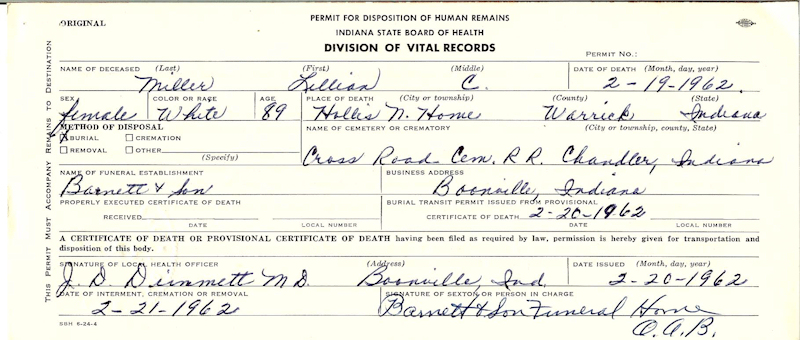 ORIGINAL
PERMIT FOR DISPOSITION OF HUMAN REMAINS
INDIANA STATE BOARD OF HEALTH
DIVISION OF VITAL RECORDS
PERMIT NO.:
THIS PERMIT MUST ACCOMPANY REMAINS TO DESTINATION
NAME OF DECEASED (Last) (First) (Middle) DATE OF DEATH (Month, day, year)
Miller Lillian C. 2-19-1962.
SEX COLOR OR RACE AGE PLACE OF DEATH (City or township) (County) (State)
female White 89 Hollis N. Home Warrick Indiana
METHOD OF DISPOSAL NAME OF CEMETERY OR CREMATORY (City or township, county, State)
X BURIAL CREMATION
REMOVAL OTHER
(Specify)
Cross Road Cem. R.R. Chandler, Indiana
NAME OF FUNERAL ESTABLISHMENT BUSINESS ADDRESS
Barnett & Son Boonville, Indiana
PROPERLY EXECUTED CERTIFICATE OF DEATH BURIAL TRANSIT PERMIT ISSUED FROM PROVISIONAL
RECEIVED CERTIFICATE OF DEATH 2-20-1962
DATE LOCAL NUMBER DATE LOCAL NUMBER
A CERTIFICATE OF DEATH OR PROVISIONAL CERTIFICATE OF DEATH having been filed as required by law, permission is hereby given for transportation and
disposition of this body.
SIGNATURE OF LOCAL HEALTH OFFICER (Address) DATE ISSUED (Month, day, year)
J. D. Dimmett M D. Boonville, Ind. 2-20-1962
DATE OF INTERMENT, CREMATION OR REMOVAL SIGNATURE OF SEXTON OR PERSON IN CHARGE
2-21-1962 Barnett & Son Funeral Home
O.A.B.
SBH 6-24-4